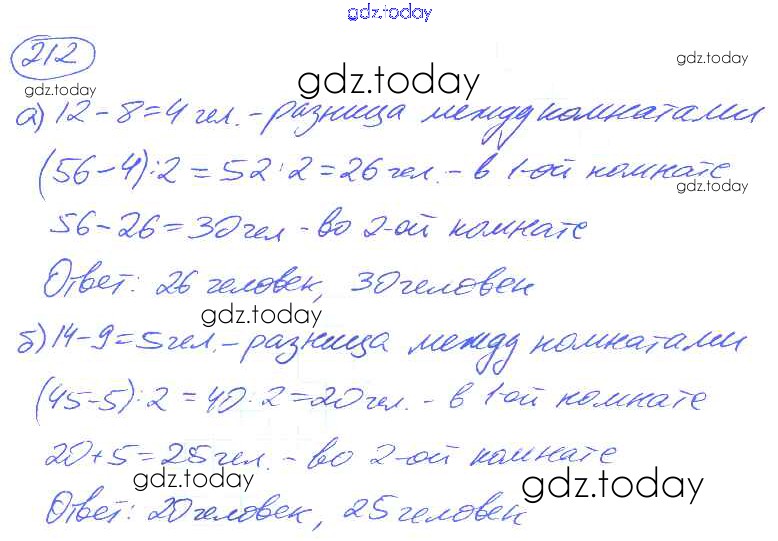 gdz.today
212
gdz.today
gdz.today
gdz.today
а) 12 - 8 = 4 чел. - разница между комнатами
(56 - 4) : 2 = 52 : 2 = 26 чел. - в 1-ой комнате
gdz.today
56 - 26 = 30 чел - во 2-ой комнате
Ответ: 26 человек, 30 человек
gdz.today
б) 14 - 9 = 5 чел. - разница между комнатами
(45 - 5) : 2 = 40 : 2 = 20 чел. - в 1-ой комнате
20 + 5 = 25 чел. - во 2-ой комнате
gdz.today
gdz.today
Ответ: 20 человек, 25 человек